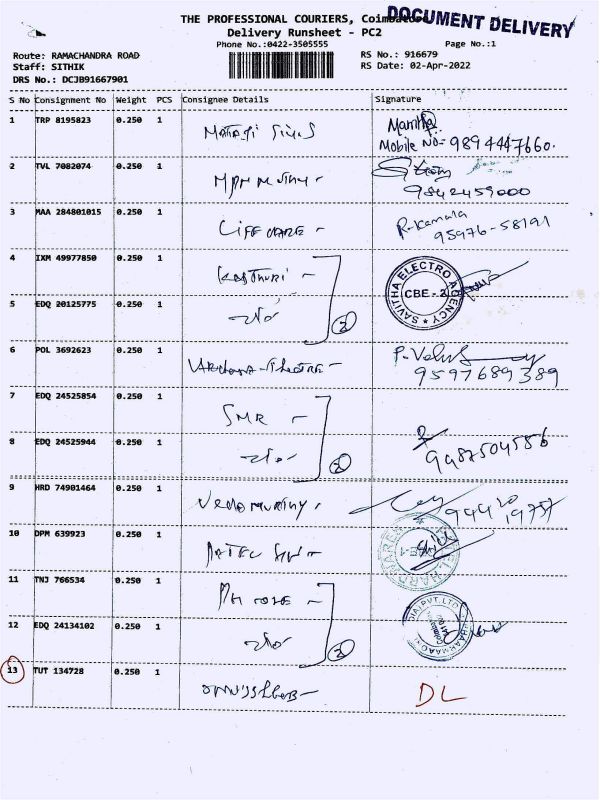 THE PROFESSIONAL COURIERS, Coimbatore
DOCUMENT DELIVERY
Delivery Runsheet - PC2
Phone No.:0422-3505555
Page No.:1
Route: RAMACHANDRA ROAD
RS No.: 916679
Staff: SITHIK
RS Date: 02-Apr-2022
DRS No.: DCJB91667901
S No Consignment No Weight PCS Consignee Details Signature
1 TRP 8195823 0.250 1
Mobile No- 9894447660.
2 TVL 7082074 0.250 1
9842459000
3 MAA 284801015 0.250 1
R-Kamala
95976-58191
4 IXM 49977850 0.250 1 Kasthuri
SAVITHA ELECTRO AGENCY
CBE - 2
5 EDQ 20125775 0.250 1
2
6 POL 3692623 0.250 1
9597689389
7 EDQ 24525854 0.250 1 SMR
8 EDQ 24525944 0.250 1
2
9487504586
9 HRD 74901464 0.250 1 Vedamurthy
94420
19757
10 DPM 639923 0.250 1
11 TNJ 766534 0.250 1
12 EDQ 24134102 0.250 1
2
13 TUT 134728 0.250 1 DL